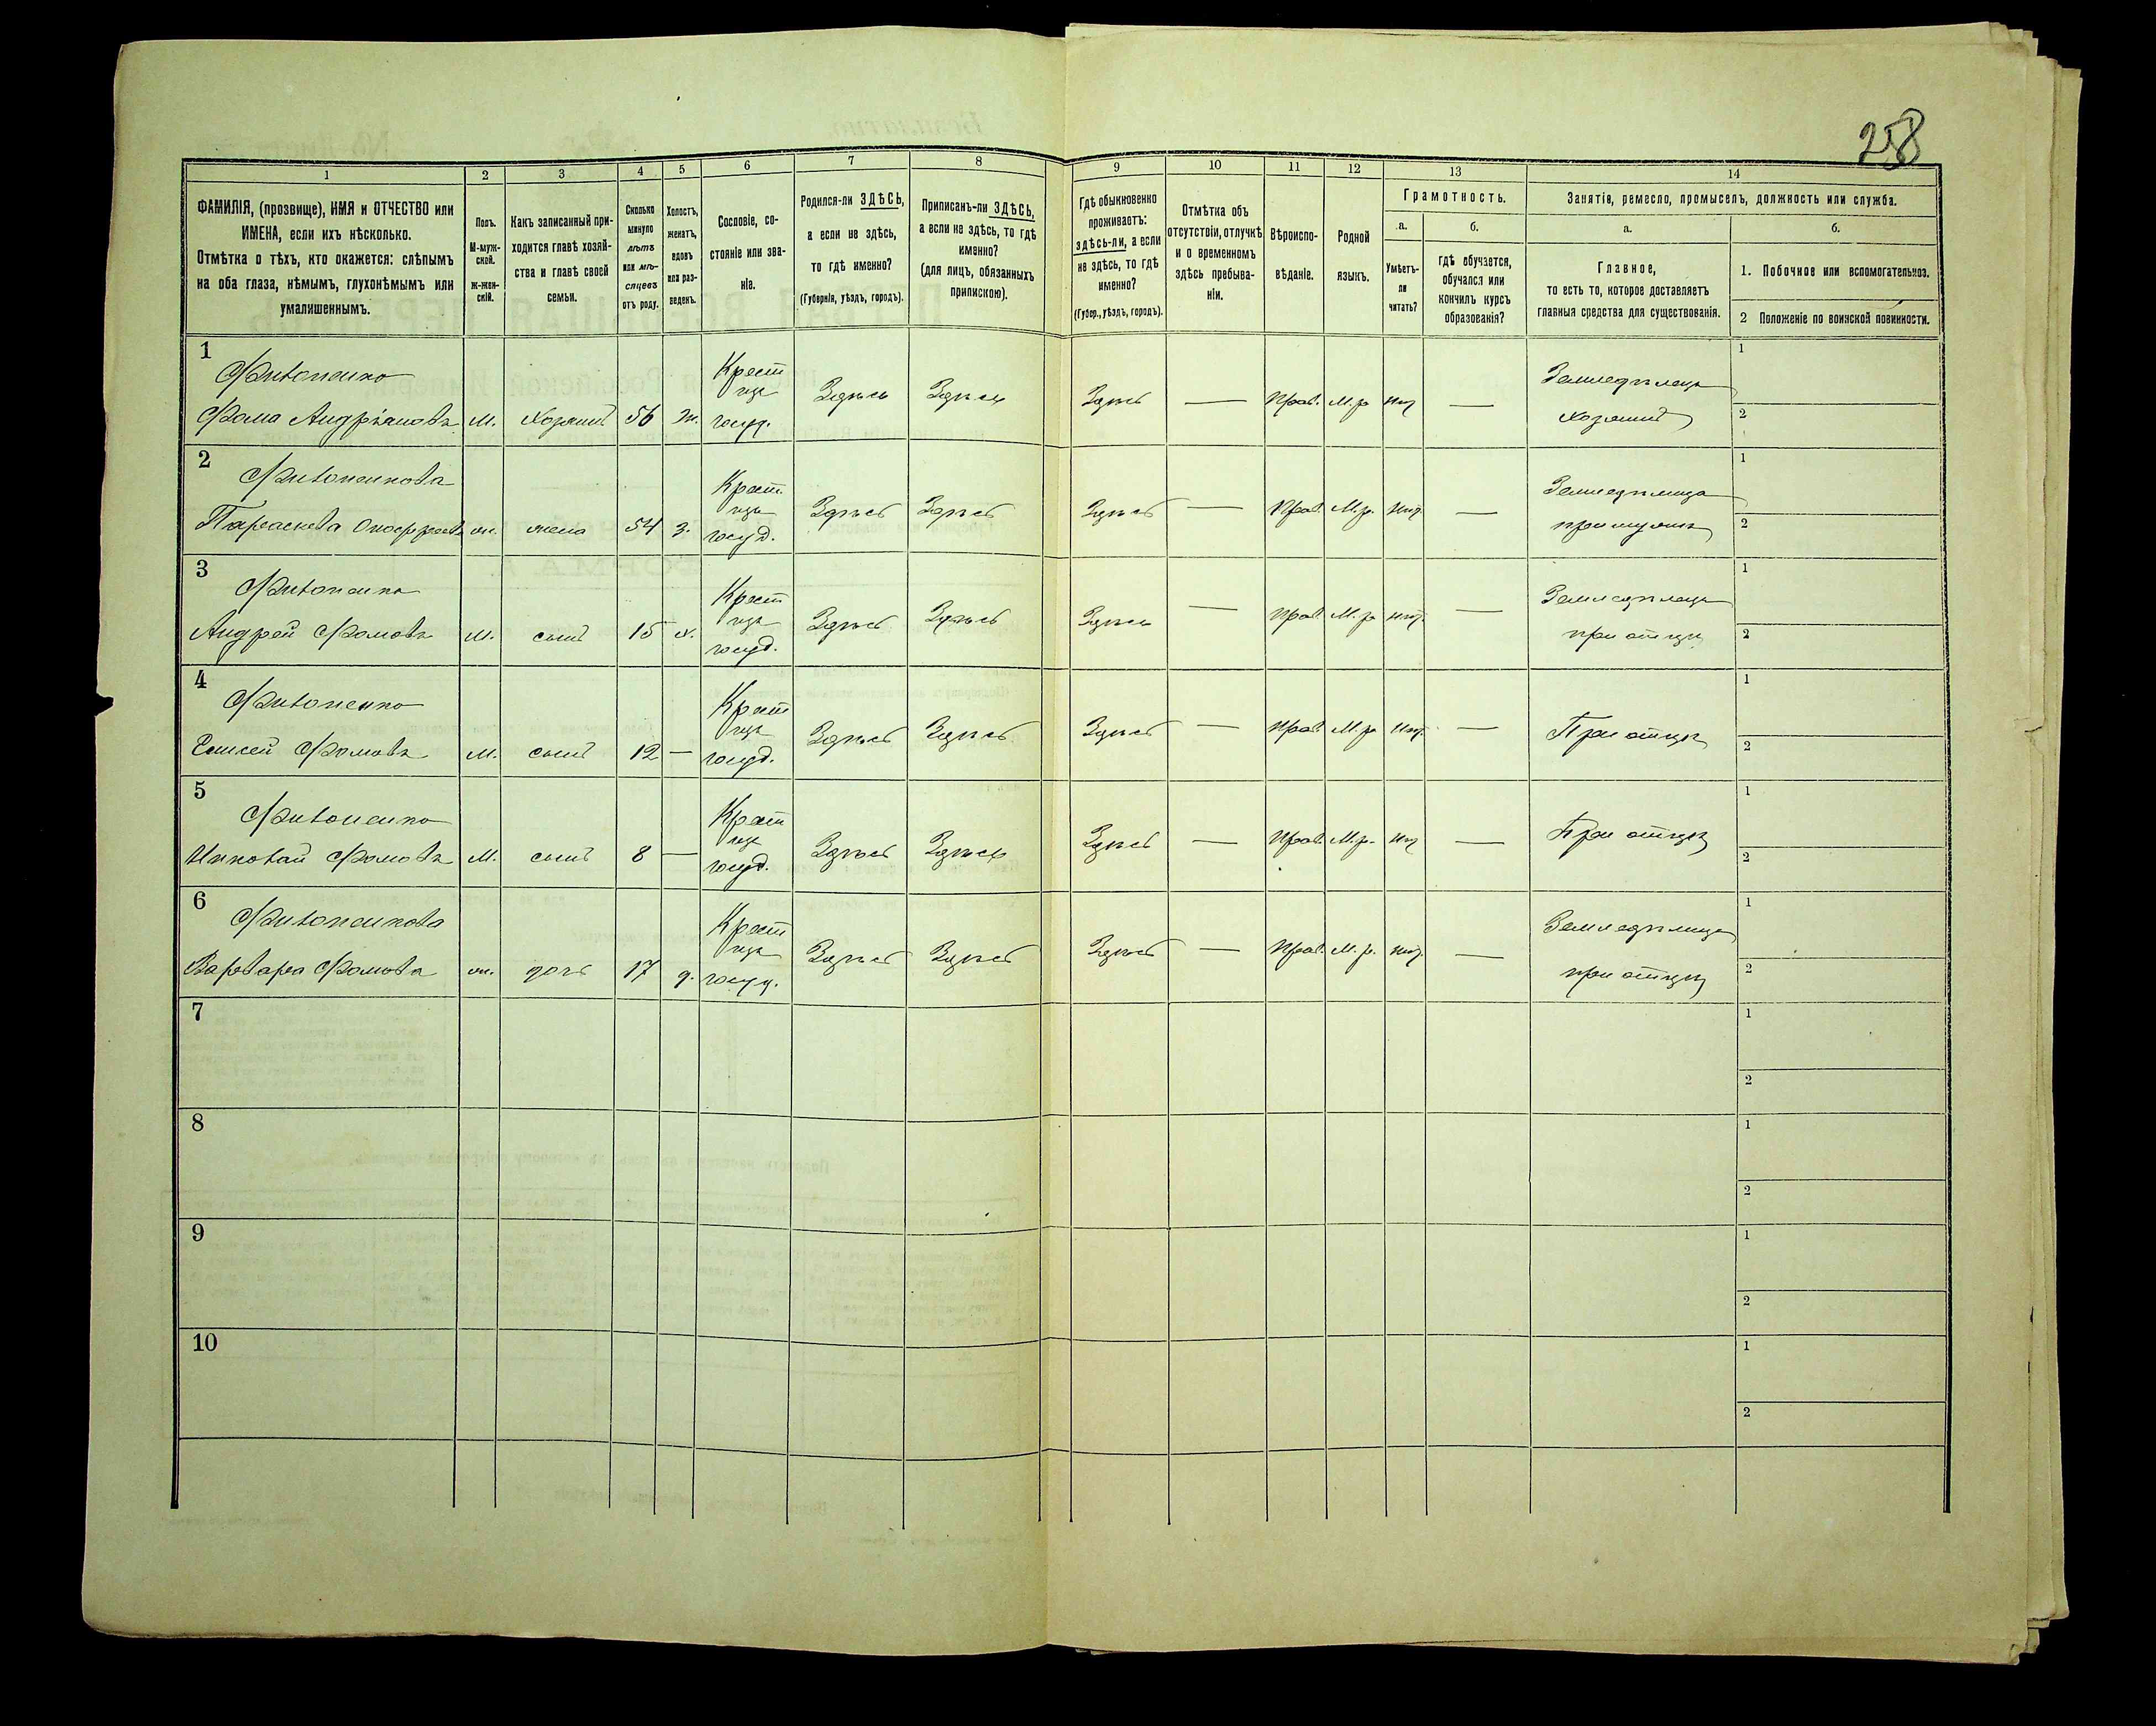 258
1 2 3 4 5 6 7 8 9 10 11 12 13 14
ФАМИЛІЯ, (прозвище), ИМЯ и ОТЧЕСТВО или
ИМЕНА, если ихъ нѣсколько.
Отмѣтка о тѣхъ, кто окажется: слѣпымъ
на оба глаза, нѣмымъ, глухонѣмымъ или
умалишеннымъ.
Полъ.
М-муж-
ской.
Ж-жен-
скій.
Какъ записанный при-
ходится главѣ хозяй-
ства и главѣ своей
семьи.
Сколько
минуло
лѣтъ
или мѣ-
сяцевъ
отъ роду.
Холостъ,
женатъ,
вдовъ
или раз-
веденъ.
Сословіе, со-
стояніе или зва-
ніе.
Родился-ли ЗДѢСЬ,
а если не здѣсь,
то гдѣ именно?
(Губернія, уѣздъ, городъ).
Приписанъ-ли ЗДѢСЬ,
а если не здѣсь, то гдѣ
именно?
(для лицъ, обязанныхъ
припискою).
Гдѣ обыкновенно
проживаетъ:
здѣсь-ли, а если
не здѣсь, то гдѣ
именно?
(Губер., уѣздъ, городъ).
Отмѣтка объ
отсутствіи, отлучкѣ
и о временномъ
здѣсь пребыва-
ніи.
Вѣроиспо-
вѣданіе.
Родной
языкъ.
Грамотность.
а.
Умѣетъ-
ли
читать?
б.
гдѣ обучается,
обучался или
кончилъ курсъ
образованія?
Занятіе, ремесло, промыселъ, должность или служба.
а.
Главное,
то есть то, которое доставляетъ
главныя средства для существованія.
б.
1. Побочное или вспомогательное.
2 Положеніе по воинской повинности.
1
Фома Андріановъ М. Хозяинъ 56 ж. Крест. госуд. Здѣсь Здѣсь Здѣсь — Прав. М. р. нѣт — Земледѣлецъ хозяинъ 1 2
2
Параскева ж. жена 54 з. Крест. госуд. Здѣсь Здѣсь Здѣсь — Прав. М. р. нѣт — 1 2
3
Андрей Фомовъ М. сынъ 15 х. Крест. госуд. Здѣсь Здѣсь Здѣсь — Прав. М. р. нѣт. — Земледѣлецъ при отцѣ 1 2
4
Елисей Фомовъ М. сынъ 12 — Крест. госуд. Здѣсь Здѣсь Здѣсь — Прав. М. р. нѣт. — При отцѣ 1 2
5
Фомовъ М. сынъ 8 — Крест. госуд. Здѣсь Здѣсь Здѣсь — Прав. М. р. нѣт — При отцѣ 1 2
6
Варвара Фомова ж. дочь 17 д. Крест. госуд. Здѣсь Здѣсь Здѣсь — Прав. М. р. нѣт. — при отцѣ 1 2
7 1 2
8 1 2
9 1 2
10 1 2